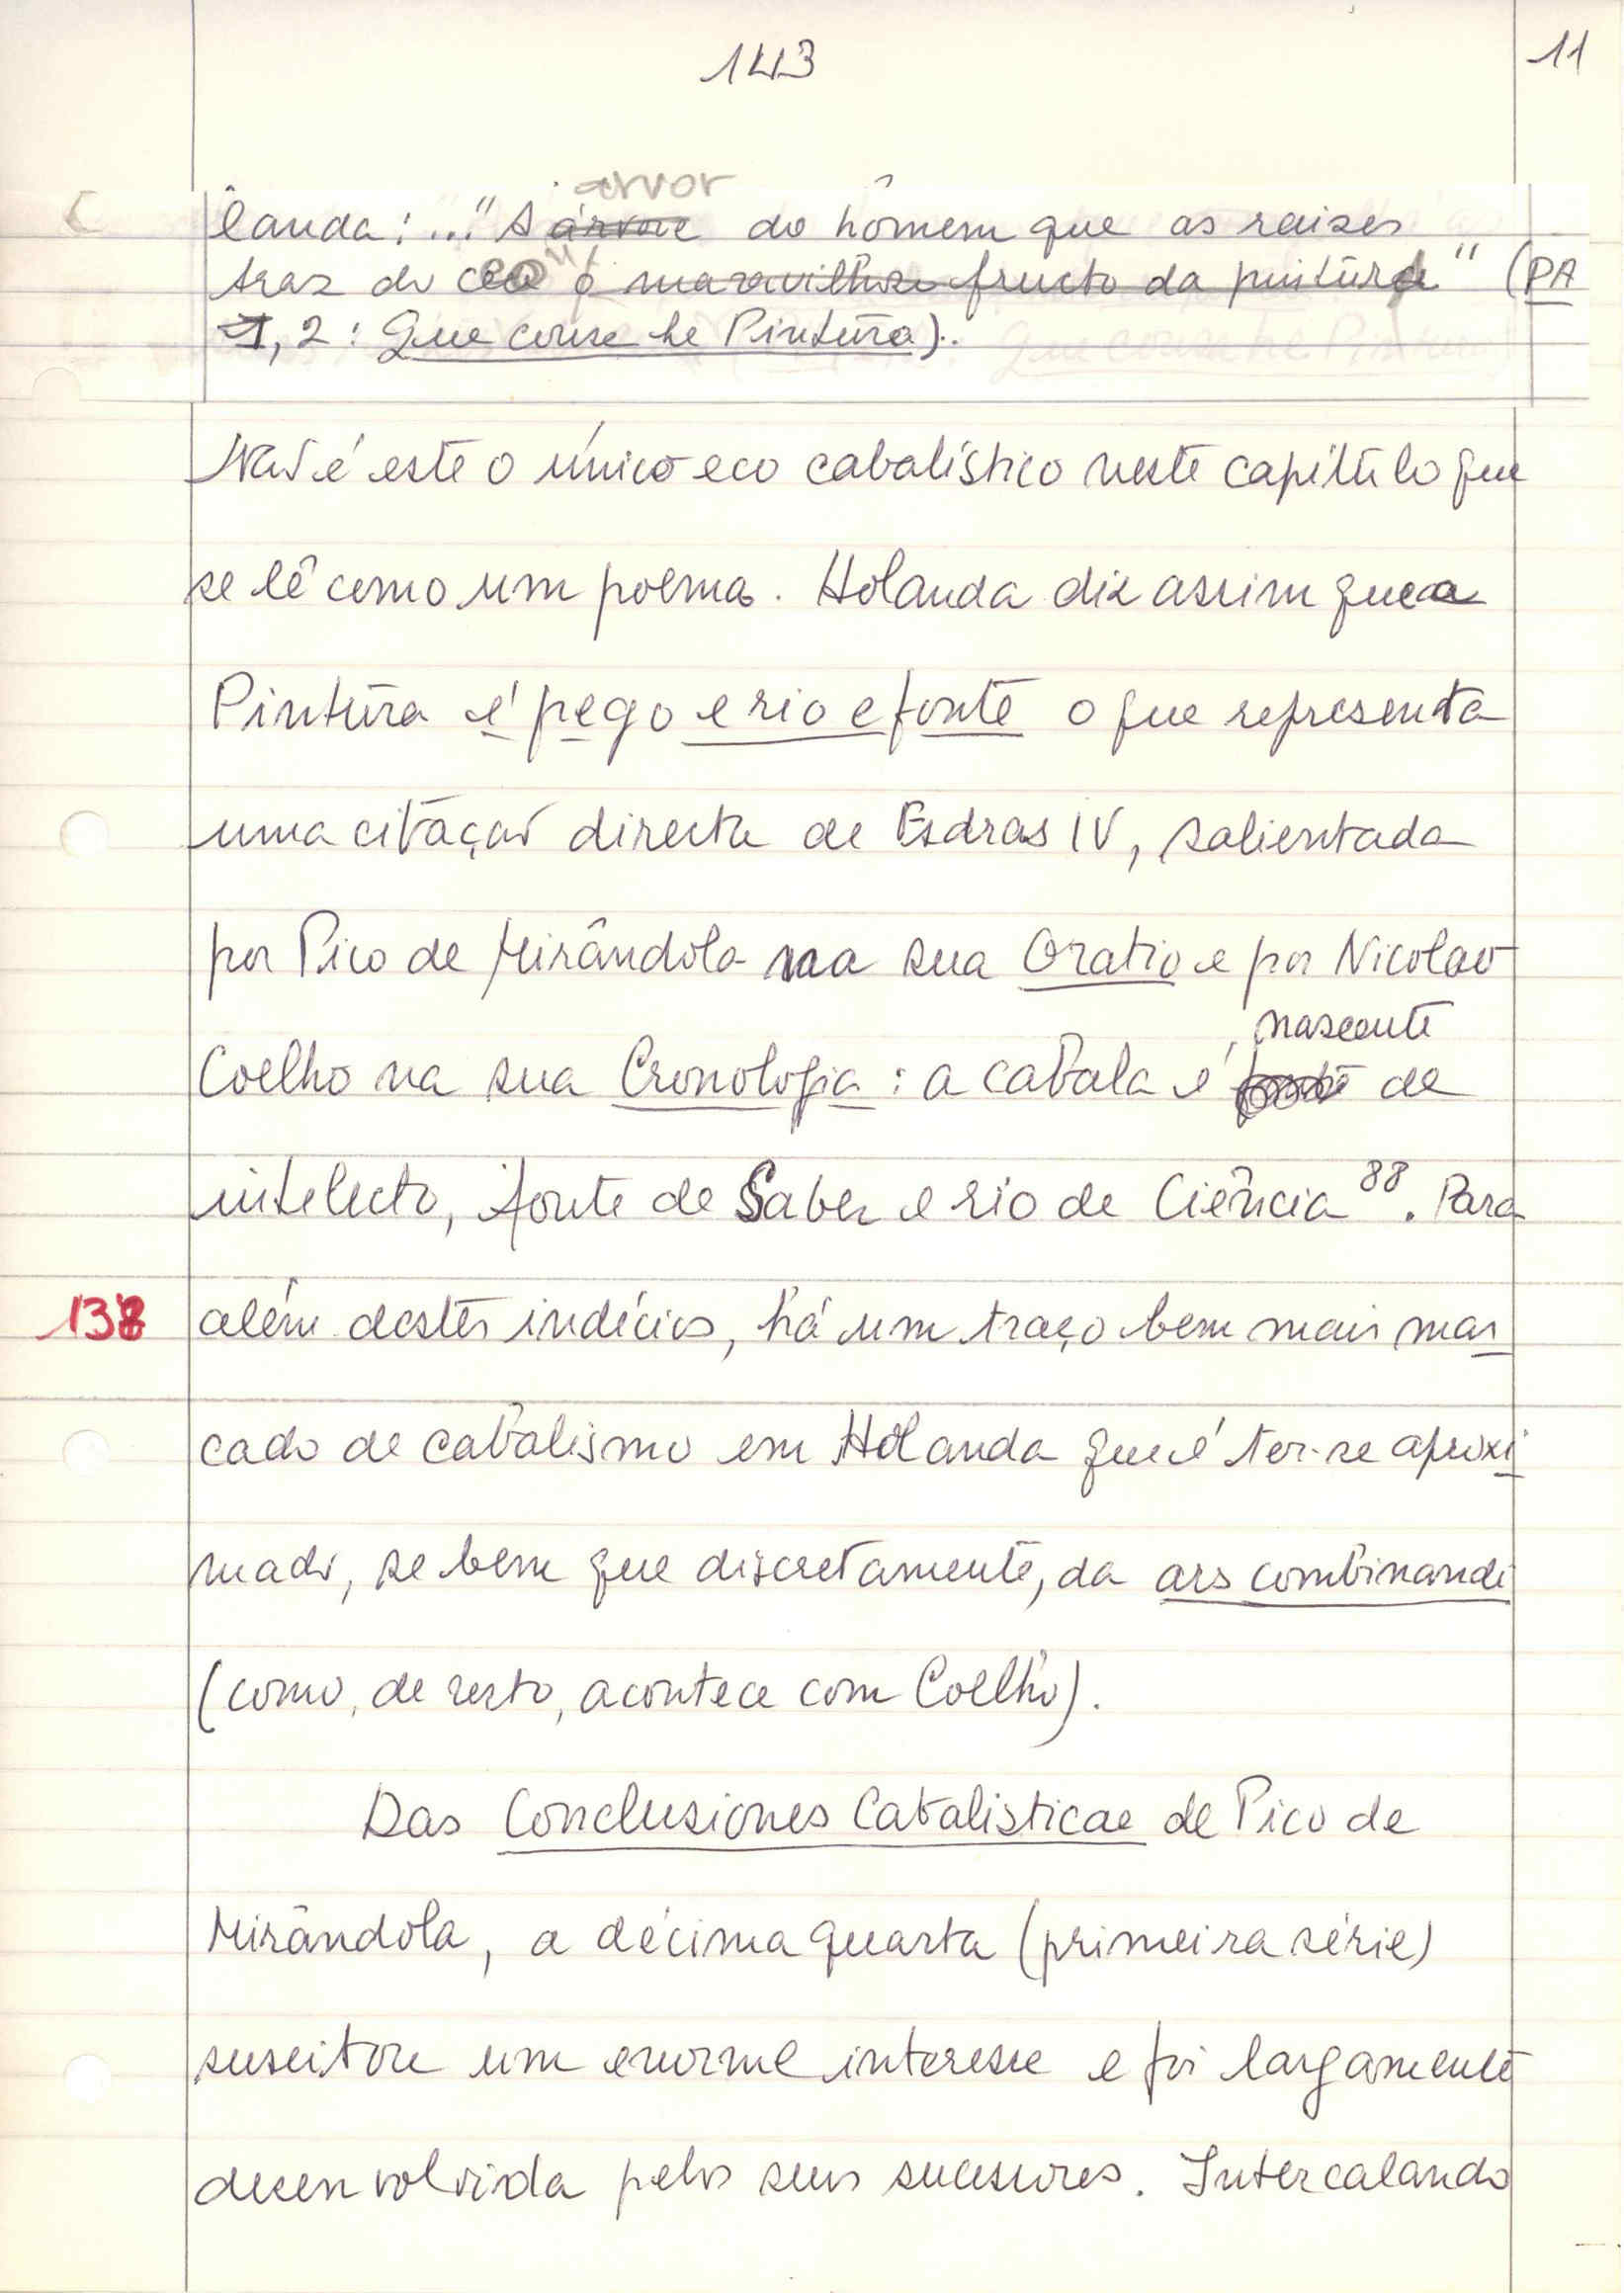 143
11
arvor
landa: ..." A árvore do hômem que as raizes
traz do ceo" o maravilhoso fructo da pintura" (PA
1, 2: Que couse he Pintura).
Não é este o único eco cabalístico neste capítulo que
se lê como um poema. Holanda diz assim que a
Pintura é pego e rio e fonte o que representa
uma citação directa de Esdras IV, salientada
por Pico de Mirândola na sua Oratio e por Nicolao
nascente
Coelho na sua Cronologia: a cabala é fonte de
intelecto, fonte de Saber e rio de Ciência 88. Para
138 além destes indícios, há um traço bem mais mar
cado de cabalismo em Holanda que é ter-se aproxi
mado, se bem que discretamente, da ars combinandi
(como, de resto, acontece com Coelho).
Das Conclusiones Cabalisticae de Pico de
Mirândola, a décima quarta (primeira série)
suscitou um enorme interesse e foi largamente
desenvolvida pelos seus sucessores. Intercalando